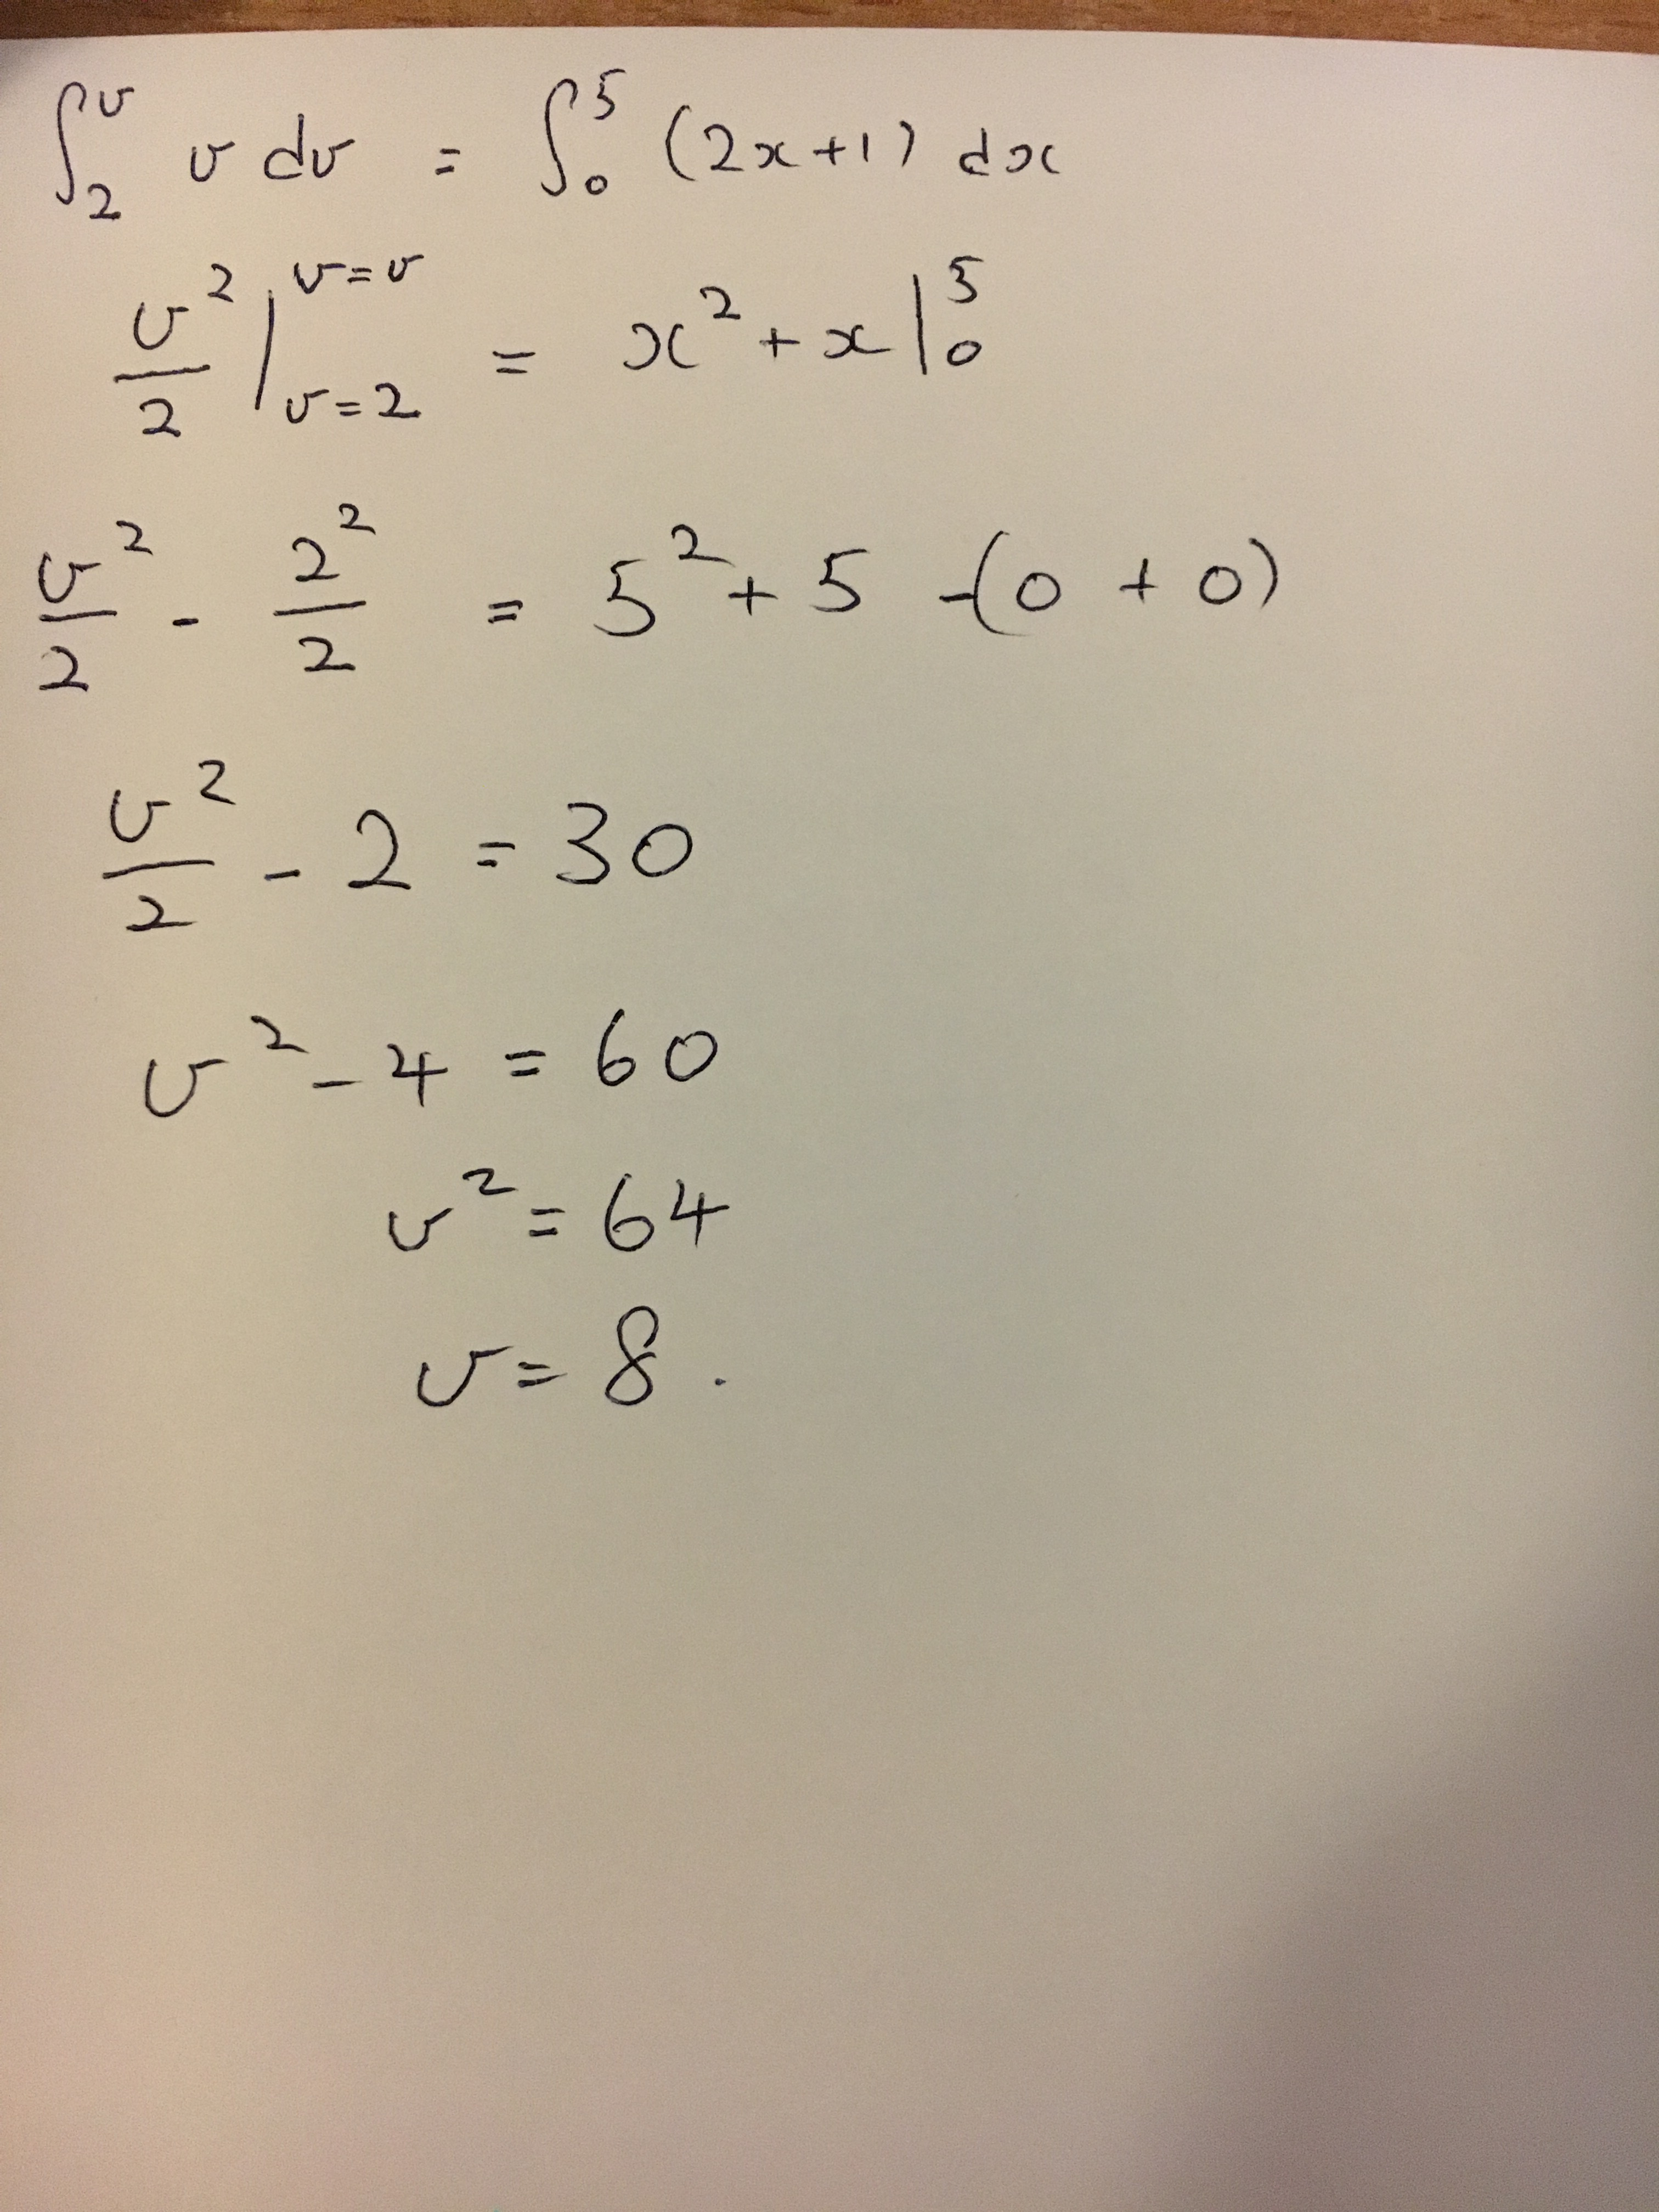 ∫₂ᵛ v dv = ∫₀⁵ (2x+1) dx
v²/2 |ᵥ₌₂ᵛ⁼ᵛ = x² + x |₀⁵
v²/2 - 2²/2 = 5² + 5 -(0 + 0)
v²/2 - 2 = 30
v² - 4 = 60
v² = 64
v = 8.